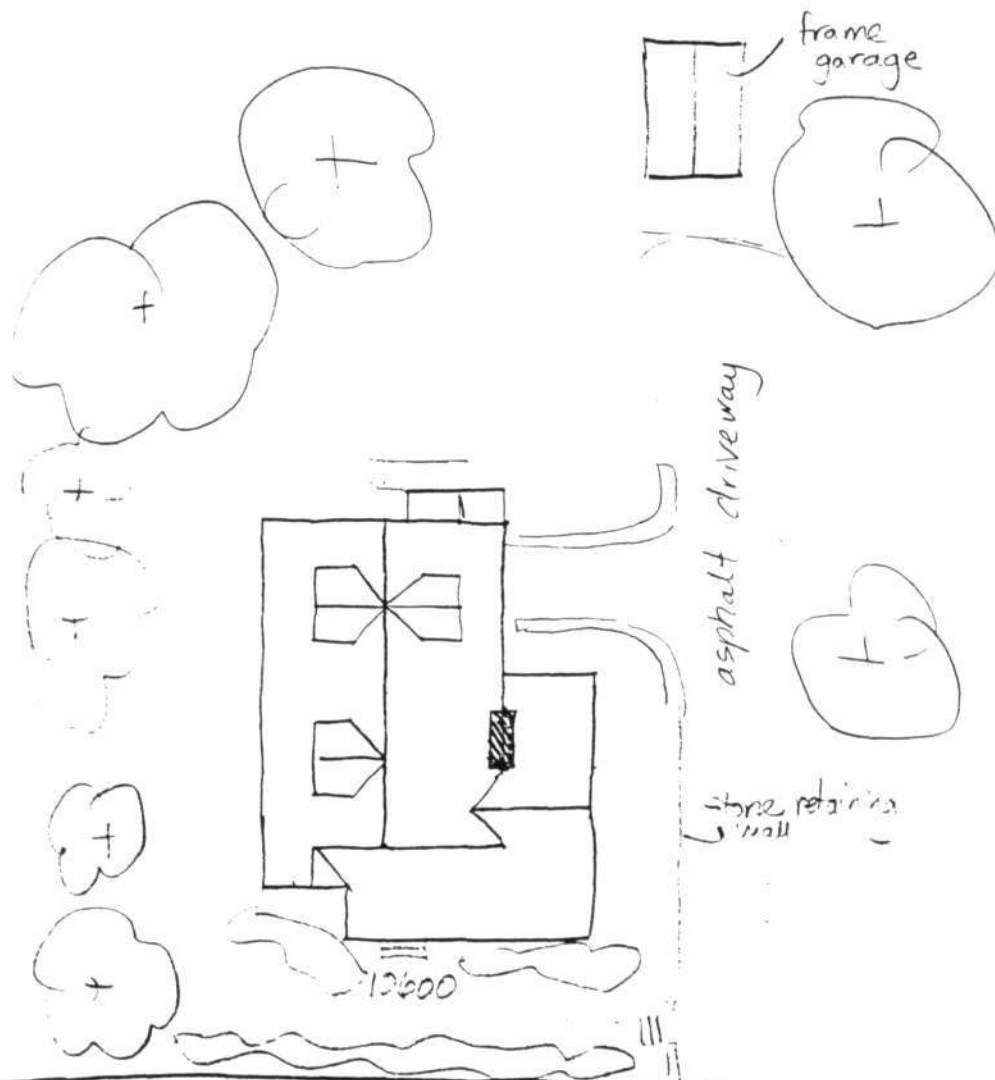 frame
garage
asphalt driveway
stone retaining
wall
12600